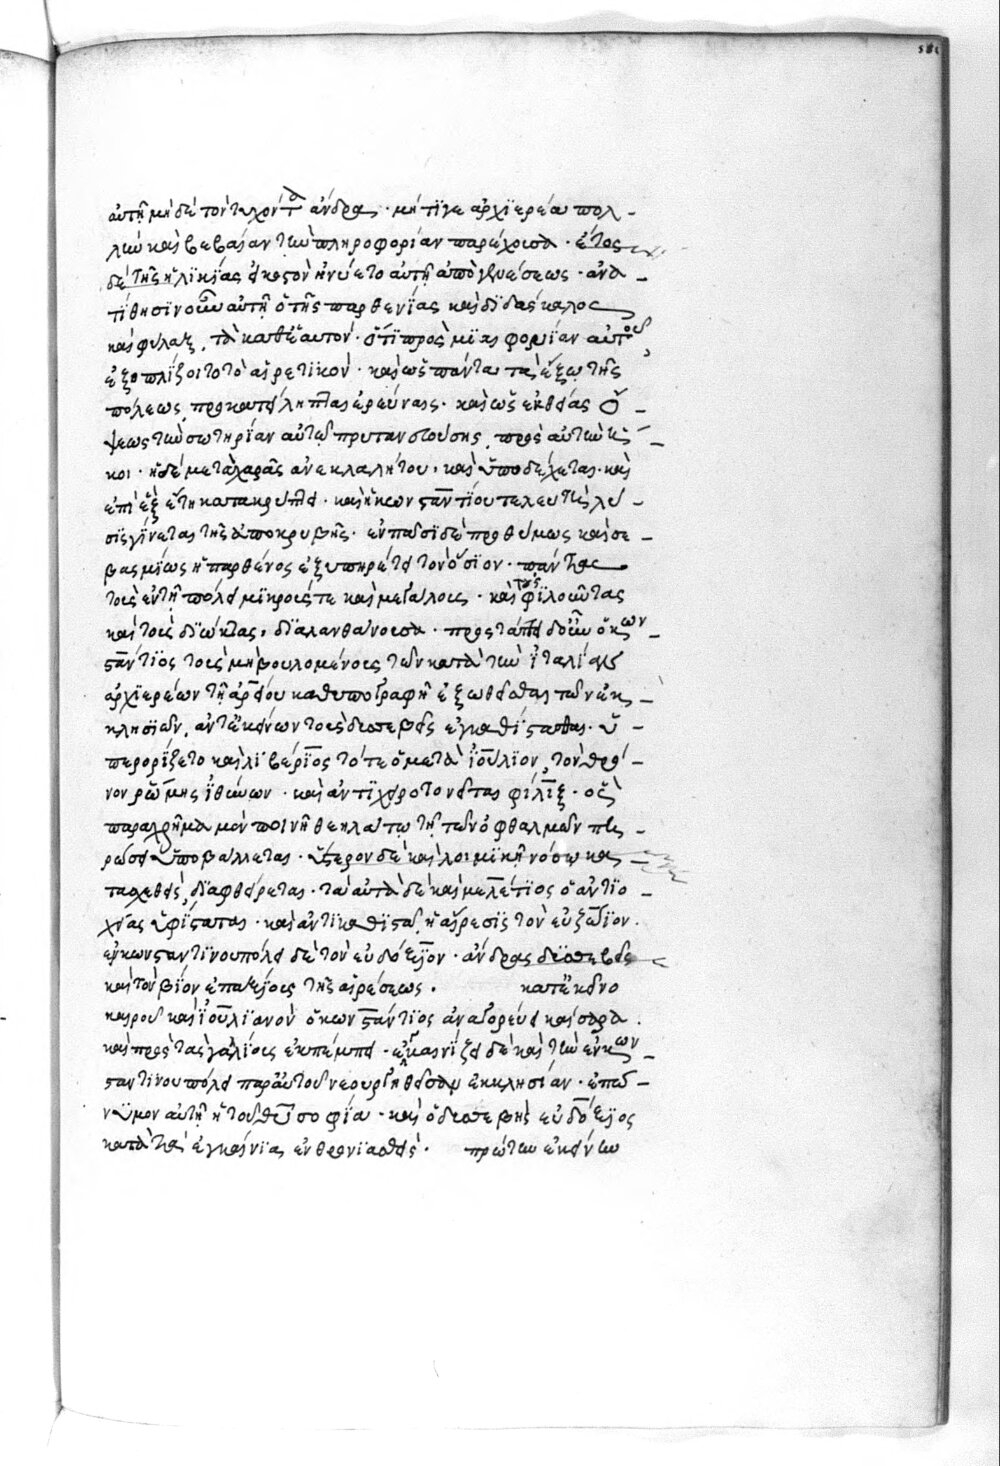 αὐτῇ μὴ δὲ τὸν τυχόντα ἄνδρα · μή τί γε ἀρχϊερέα πολ-
λὴν καὶ βεβαίαν τὴν πληροφορίαν παρέχουσα · ἔτος
δὲ τῆς ἡλικίας εἰκοστὸν ἠνύετο αὐτῇ ἀπὸ γενέσεως · ἀνα-
τίθησιν οὖν αὐτῇ ὁ τῆς παρθενίας καὶ διδάσκαλος
καὶ φύλαξ, τὰ καθ' ἑαυτόν · ὅτι πρὸς μιαιφονίαν αὐτοῦ
ἐξοπλίζοιτο τὸ αἱρετικόν · καὶ ὡς πάντα τὰ ἔξω τῆς
πόλεως προκατείληπται ἐρεύναις · καὶ ὡς ἐκ θείας ὄ-
ψεως τὴν σωτηρίαν αὐτῷ πρυτανευούσης, πρὸς αὐτὴν ἥ-
κοι · ἡ δὲ μετὰ χαρᾶς ἀνεκλαλήτου · καὶ ὑποδέχεται · καὶ
ἐπὶ ἓξ ἔτη κατακρύπτει · καὶ ἡ κωνσταντίου τελευτὴ λύ-
σις γίνεται τῆς ἀποκρυβῆς · ἐν πᾶσι δὲ προθύμως καὶ σε-
βασμίως ἡ παρθένος ἐξυπηρέτει τὸν ὅσιον · πάντας
τοὺς ἐν τῇ πόλει μικρούς τε καὶ μεγάλους · καὶ τοὺς φιλοῦντας
καὶ τοὺς διώκτας, διαλανθάνουσα · προστάττει δ' οὖν ὁ κων-
σταντιος τοὺς μὴ βουλομένους τῶν κατὰ τὴν ἰταλίαν
ἀρχιερέων τῇ ἀρείου καθυπογραφῇ ἐξωθεῖσθαι τῶν ἐκ-
κλησιῶν, ἀντ' ἐκείνων τοὺς δυσσεβεῖς ἐγκαθίστασθαι · ὑ-
περορίζετο καὶ λιβέριος τότε ὁ μετὰ ἰούλιον, τὸν θρό-
νον ῥώμης ἰθύνων · καὶ ἀντιχειροτονεῖται φίλιξ · ὃς
παραχρῆμα μὲν ποινῇ θεηλάτῳ τῇ τῶν ὀφθαλμῶν πη-
ρώσει ὑποβάλλεται · ὕστερον δὲ καὶ λοιμικῇ νόσῳ κα-
τασχεθεὶς, διαφθείρεται · τὰ αὐτὰ δὲ καὶ μελέτιος ὁ ἀντιο-
χείας ὑφίσταται · καὶ ἀντικαθιστᾷ ἡ αἵρεσις τὸν εὐζώϊον ·
ἐν κωνσταντινουπόλει δὲ τὸν εὐδόξιον · ἄνδρας δυσσεβεῖς
καὶ τὸν βίον ἐπαξίους τῆς αἱρέσεως · κατ' ἐκεῖνο
καιροῦ καὶ ἰουλιανὸν ὁ κωνστάντιος ἀναγορεύει καίσαρα ·
καὶ πρὸς τὰς γαλίους ἐκπέμπει · ἐγκαινίζει δὲ καὶ τὴν ἐν κων-
σταντινουπόλει παρ' αὐτοῦ νεουργηθεῖσαν ἐκκλησίαν · ἐπώ-
νυμον αὐτῇ ἡ τοῦ θεοῦ σοφία · καὶ ὁ δυσσεβὴς εὐδόξιος
κατὰ τὰ ἐγκαίνια ἐνθρονιασθείς · πρώτην ἐκείνην